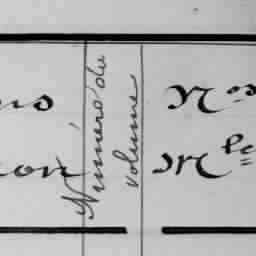 ns
ion
Numéro du
volume
Nos
Mle